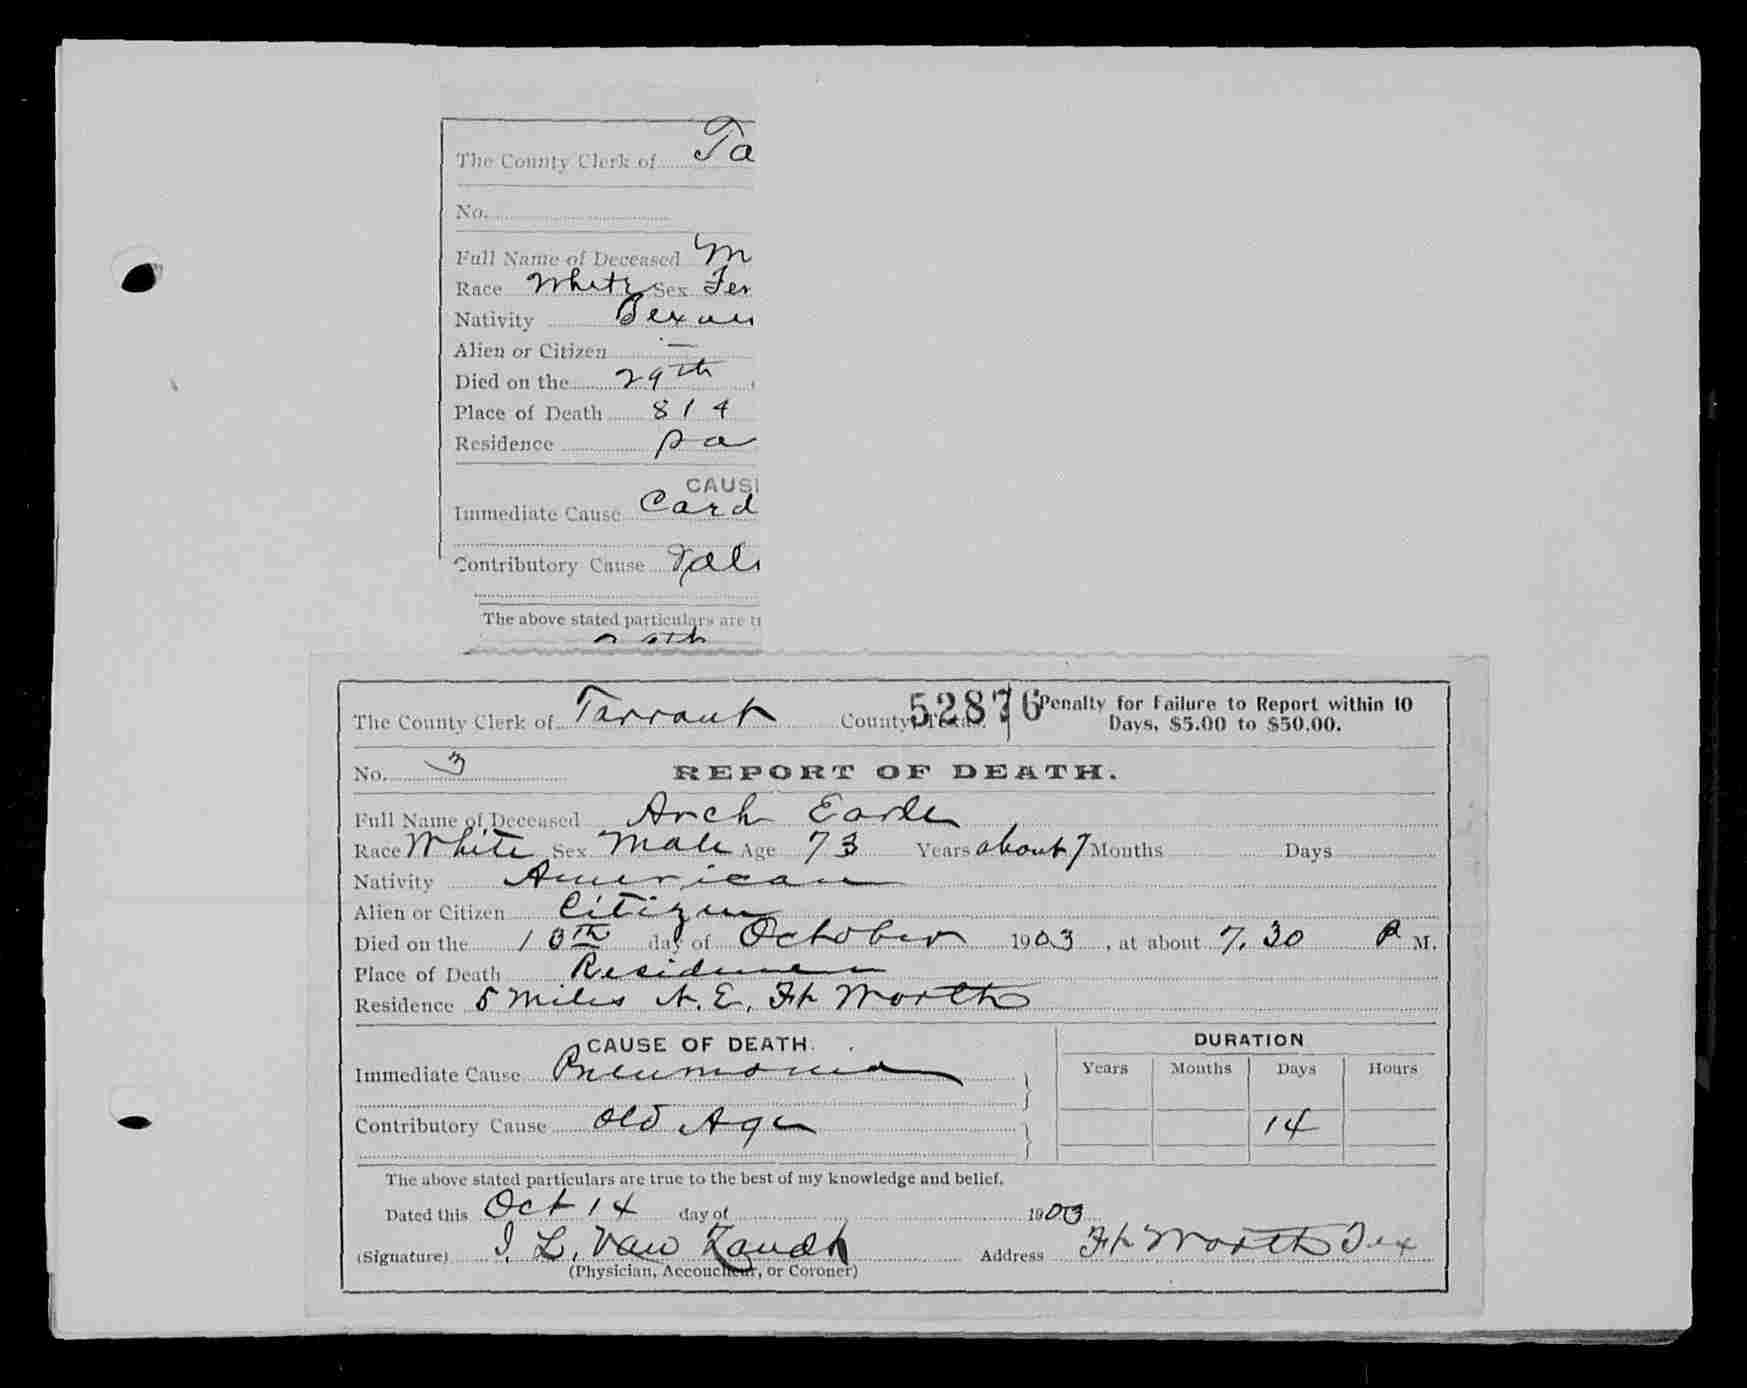 The County Clerk of Ta
No.
Full Name of Deceased M
Race White Sex Fe
Nativity
Alien or Citizen —
Died on the 29th
Place of Death 814
Residence
CAUS
Immediate Cause Card
Contributory Cause
The above stated particulars are
The County Clerk of Tarrant County, Texas. 52876 Penalty for Failure to Report within 10
Days, $5.00 to $50.00.
No. 3 REPORT OF DEATH.
Full Name of Deceased Arch Earle
Race White Sex Male Age 73 Years about 7 Months Days
Nativity American
Alien or Citizen Citizen
Died on the 13th day of October 1903, at about 7.30 P M.
Place of Death Residence
Residence 5 Miles N. E. Ft Worth
CAUSE OF DEATH. DURATION
Immediate Cause Pneumonia Years Months Days Hours
Contributory Cause Old Age 14
The above stated particulars are true to the best of my knowledge and belief.
Dated this Oct 14 day of 1903
(Signature) I. L. Van Zandt Address Ft Worth Tex
(Physician, Accoucheur, or Coroner)